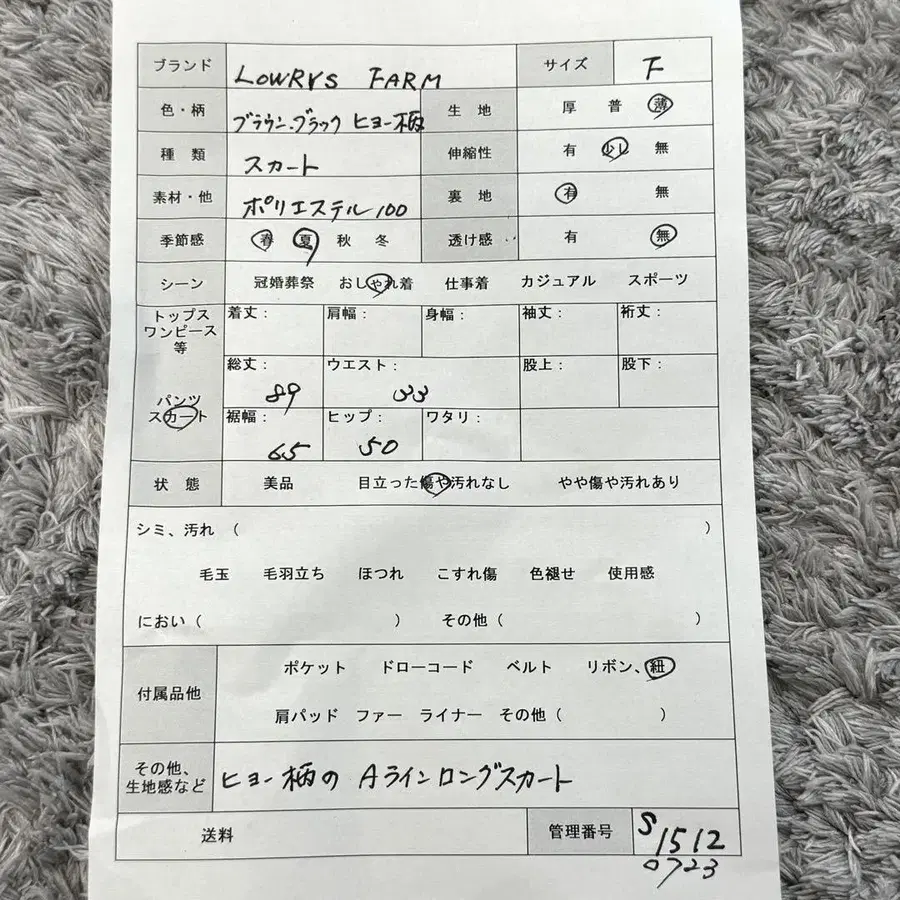 ブランド LOWRYS FARM サイズ F
色・柄 ブラウン・ブラック ヒョー柄 生 地 厚 普 薄
種 類 スカート 伸縮性 有 少し 無
素材・他 ポリエステル100 裏 地 有 無
季節感 春 夏 秋 冬 透け感 有 無
シーン 冠婚葬祭 おしゃれ着 仕事着 カジュアル スポーツ
トップス
ワンピース
等
着丈： 肩幅： 身幅： 袖丈： 裄丈：
パンツ
スカート
総丈： 89 ウエスト： 33 股上： 股下：
裾幅： 65 ヒップ： 50 ワタリ：
状 態 美品 目立った傷や汚れなし やや傷や汚れあり
シミ、汚れ （ ）
毛玉 毛羽立ち ほつれ こすれ傷 色褪せ 使用感
におい（ ） その他（ ）
付属品他 ポケット ドローコード ベルト リボン、紐
肩パッド ファー ライナー その他（ ）
その他、
生地感など
ヒョー柄の Aラインロングスカート
送料 管理番号 S1512
0723